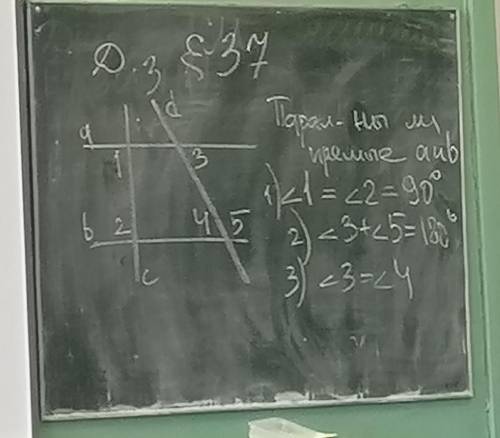 Д.З § 37
d
a
1 3
b 2 4 5
c
Парал-ны ли
прямые a и b
1) ∠1 = ∠2 = 90°
2) ∠3 + ∠5 = 180°
3) ∠3 = ∠4